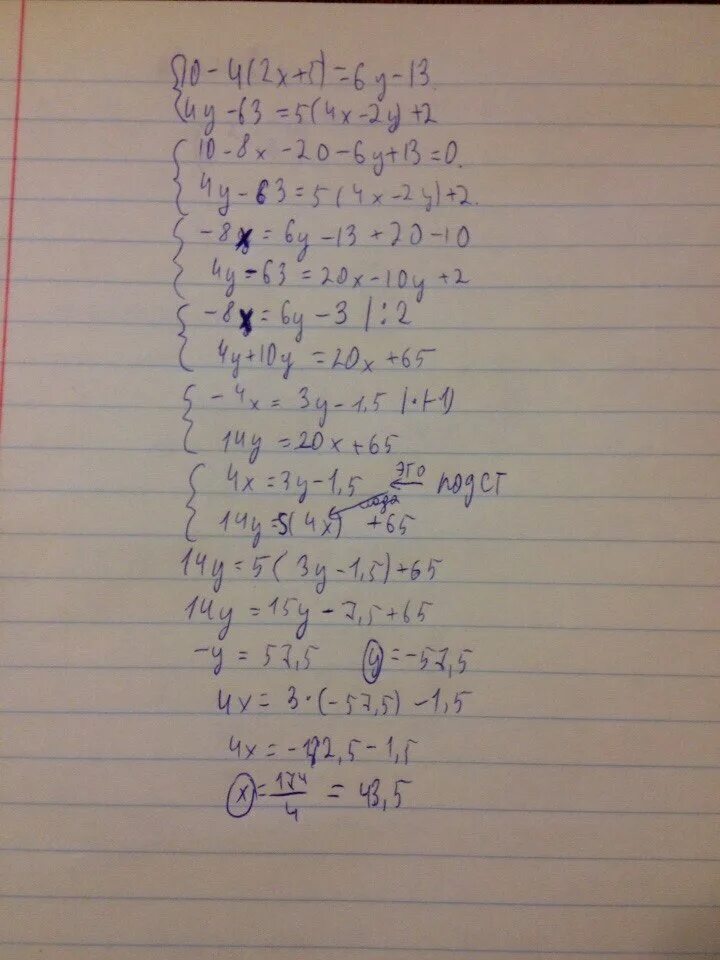 {10 - 4(2x+5) = 6y - 13
4y - 63 = 5(4x - 2y) + 2
{10 - 8x - 20 - 6y + 13 = 0.
4y - 63 = 5(4x - 2y) + 2.
{-8x = 6y - 13 + 20 - 10
4y - 63 = 20x - 10y + 2
{-8x = 6y - 3 | : 2
4y + 10y = 20x + 65
{-4x = 3y - 1,5 | · (-1)
14y = 20x + 65
{4x = 3y - 1,5 ← это подст
сюда
14y = 5(4x) + 65
14y = 5(3y - 1,5) + 65
14y = 15y - 7,5 + 65
-y = 57,5 y = -57,5
4x = 3 · (-57,5) - 1,5
4x = -172,5 - 1,5
x = 174/4 = 43,5